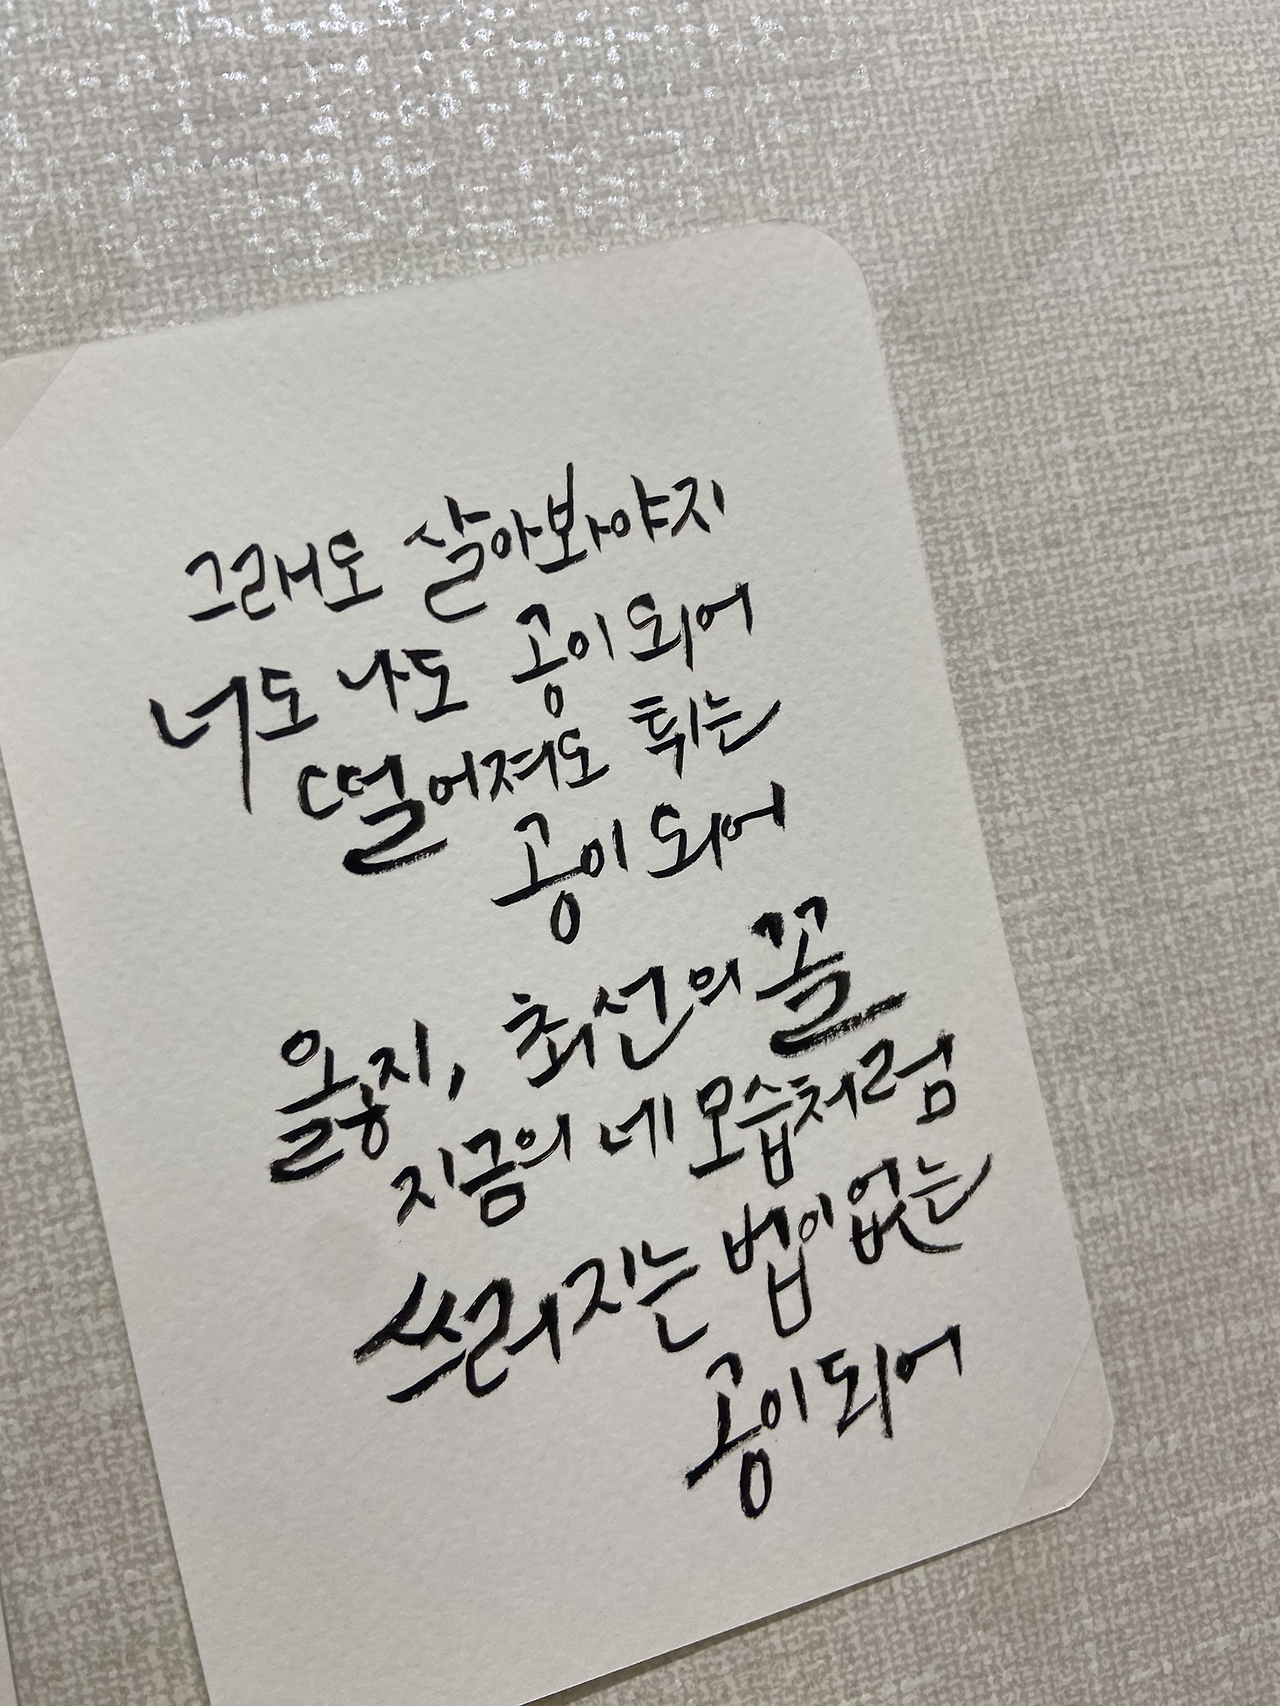 그래도 살아봐야지
너도 나도 공이 되어
떨어져도 튀는
공이 되어
옳지, 최선의 꼴
지금의 네 모습처럼
쓰러지는 법이 없는
공이 되어